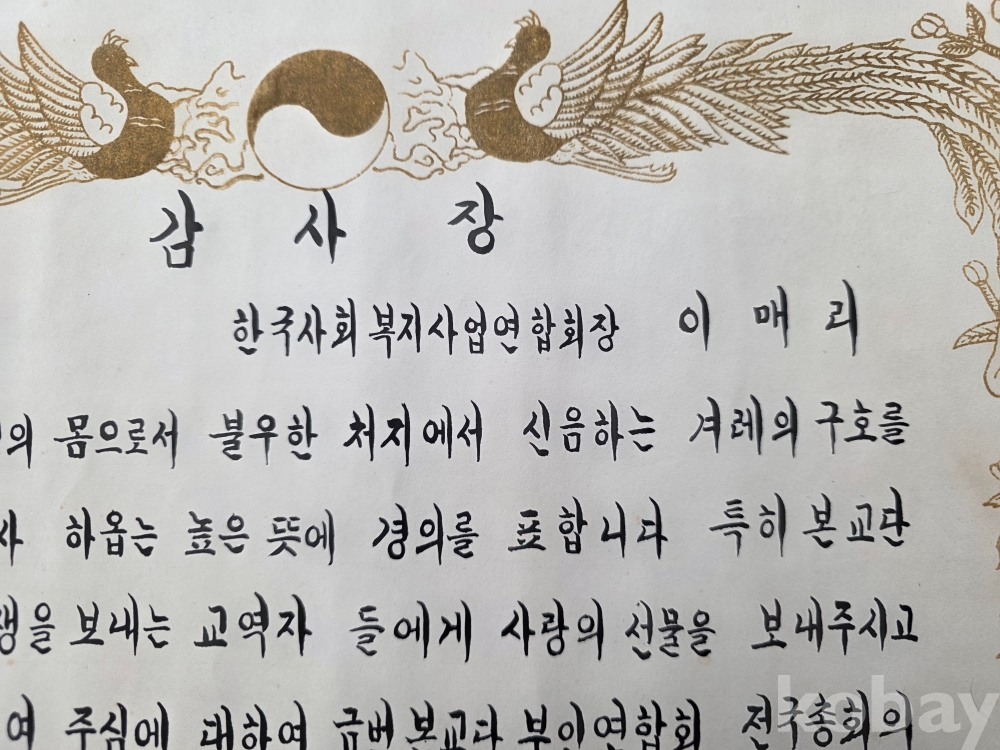 감 사 장
한국사회복지사업연합회장 이 매 리
의 몸으로서 불우한 처지에서 신음하는 겨레의 구호를
하옵는 높은 뜻에 경의를 표합니다 특히 본교단
을 보내는 교역자 들에게 사랑의 선물을 보내주시고
여 주심에 대하여 금번 본교단 부인연합회 전국총회의
kobay